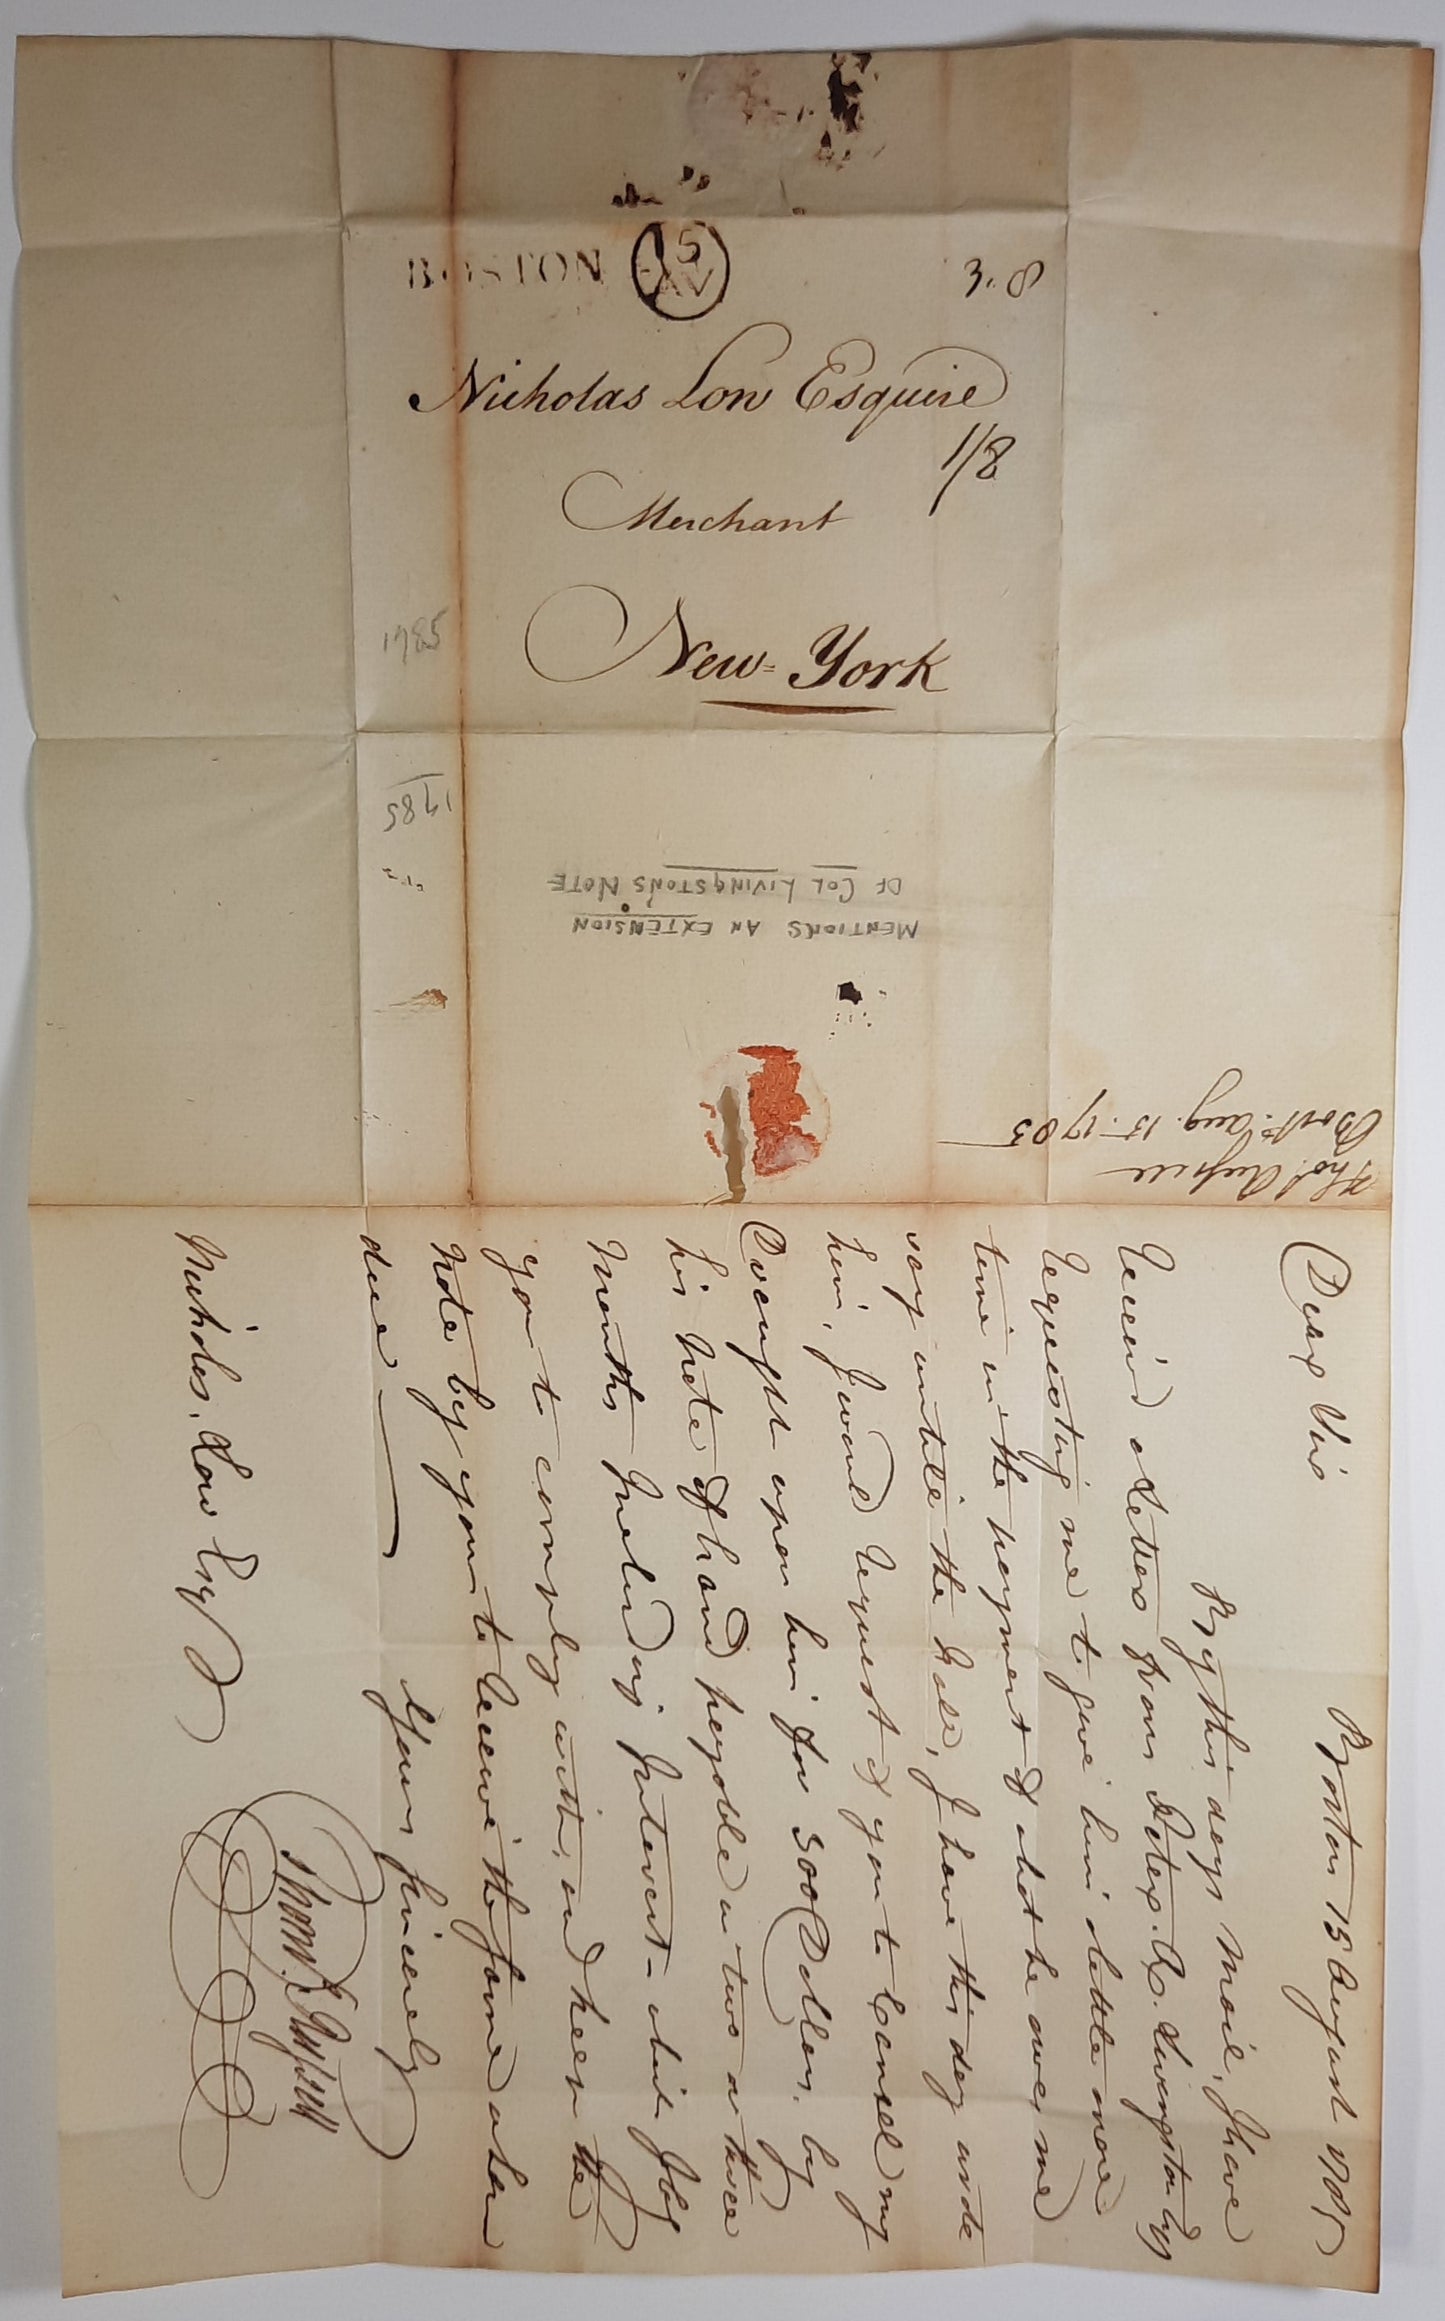 BOSTON 15 AV
3.8
Nicholas Low Esquire
1/8
Merchant
New=York
1785
1785
OF COL LIVINGSTONS NOTE
MENTIONS AN EXTENSION
Bost: Aug. 15. 1785
Thos Russell
Boston 15 August 1785
Dear Sir
By this days Mail, I have
Receiv'd a Letter from Peter R. Livingston by
requesting me to give him a little more
time in the payment of what he owes me
say untill the Fall, I have this day wrote
him, I would request of you to Cancel my
Draught upon him for 500 Dollars, by
his Note of hand payable in two or three
Months Including Interest - which I beg
you to comply with, and keep the
Note by you to receive the same when
due
Yours sincerely
Thomas Russell
Nicholas Low Esq